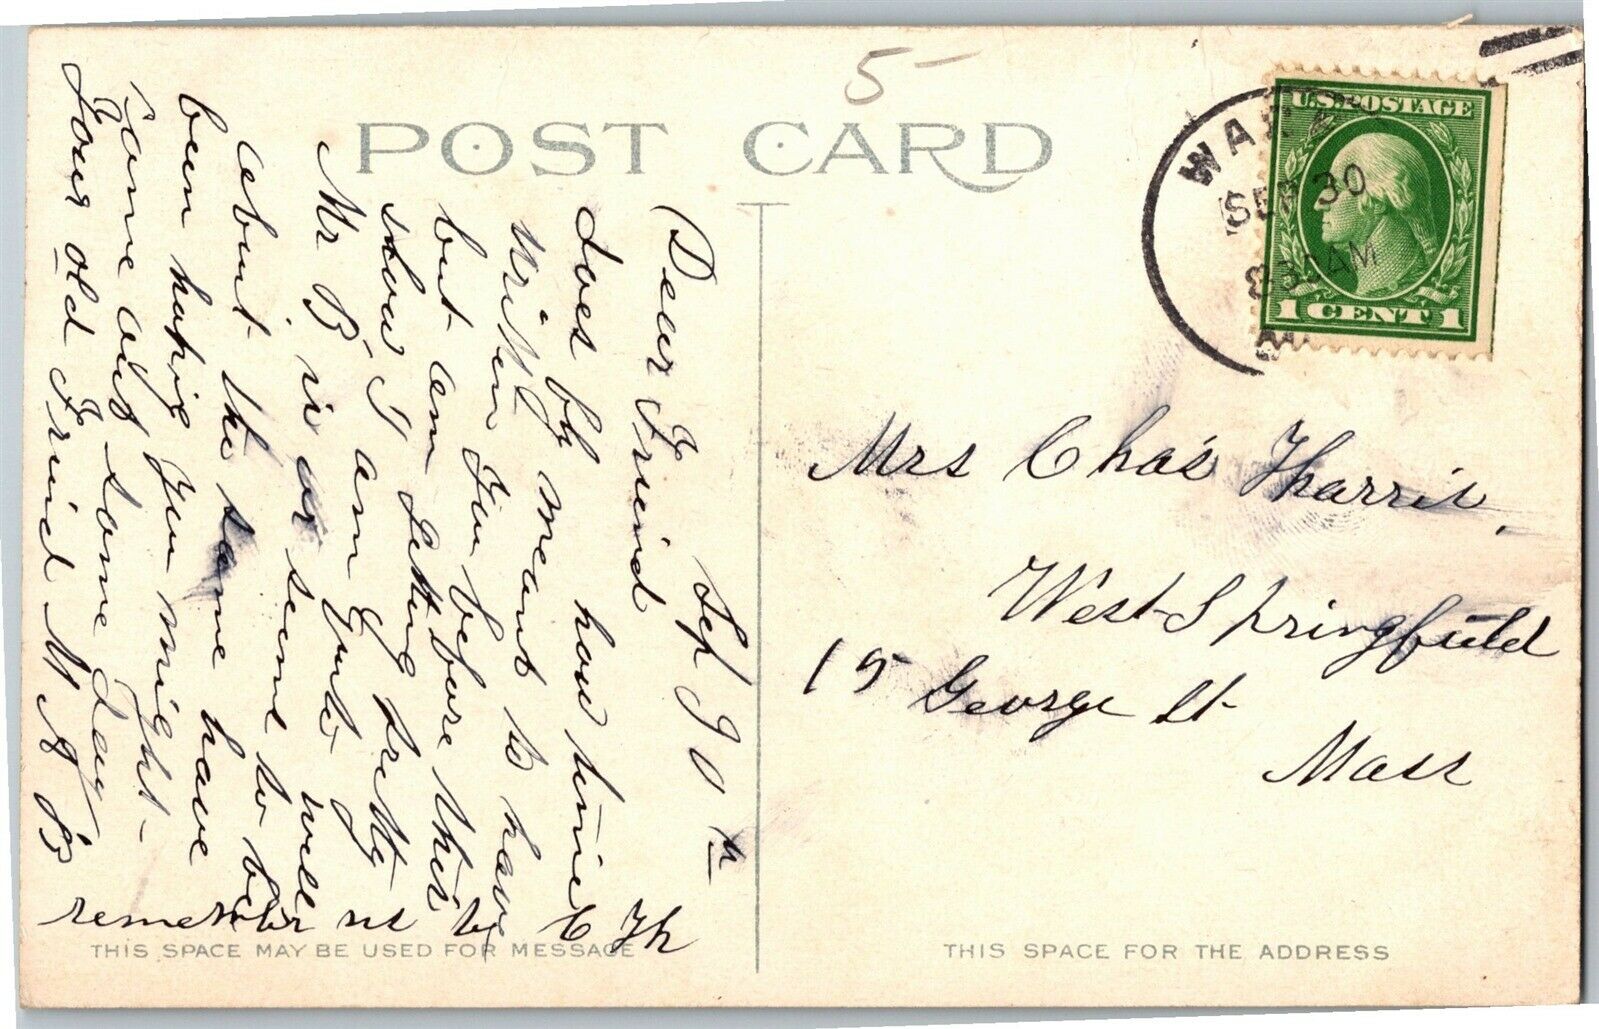 5-
POST CARD
U.S. POSTAGE
SEP 30
830AM
1 CENT 1
Sep 30 th
Dear Friend
does by how time
I meant to have
written you before this
but am getting pretty
slow I am quite
Mr B is or seems to be
about the same have
been hoping you might
come out some day
Your old Friend M A B
will
remember us to C Th
Mrs Chas Tharris,
West Springfield
15 George St
Mass
THIS SPACE MAY BE USED FOR MESSAGE
THIS SPACE FOR THE ADDRESS